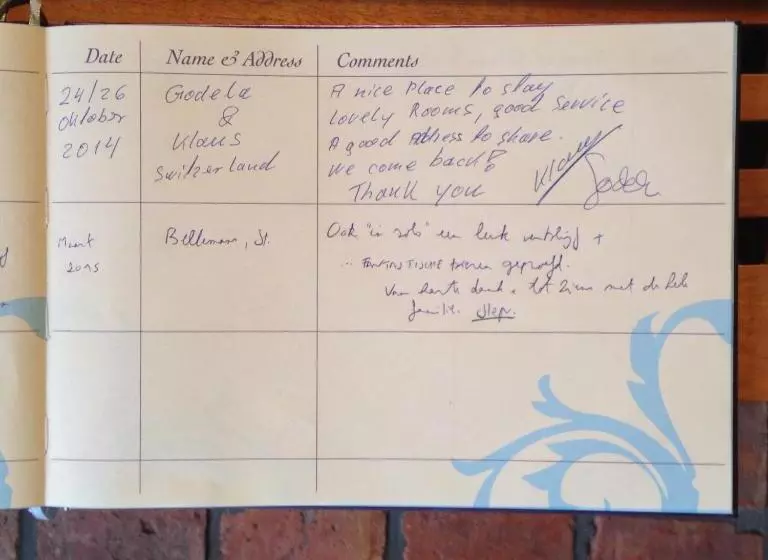 Date Name & Address Comments
24/26 Oktober 2014
Godela & Klaus Switzerland
A nice place to stay
Lovely Rooms, good Service
A good Adress to share.
We come back!
Thank you Klaus
Maart
Bellemans, St.
Ook "in solo" een leuk verblijf +
... FANTASTISCHE geproefd.
Van harte dank & tot ziens met de hele
familie.